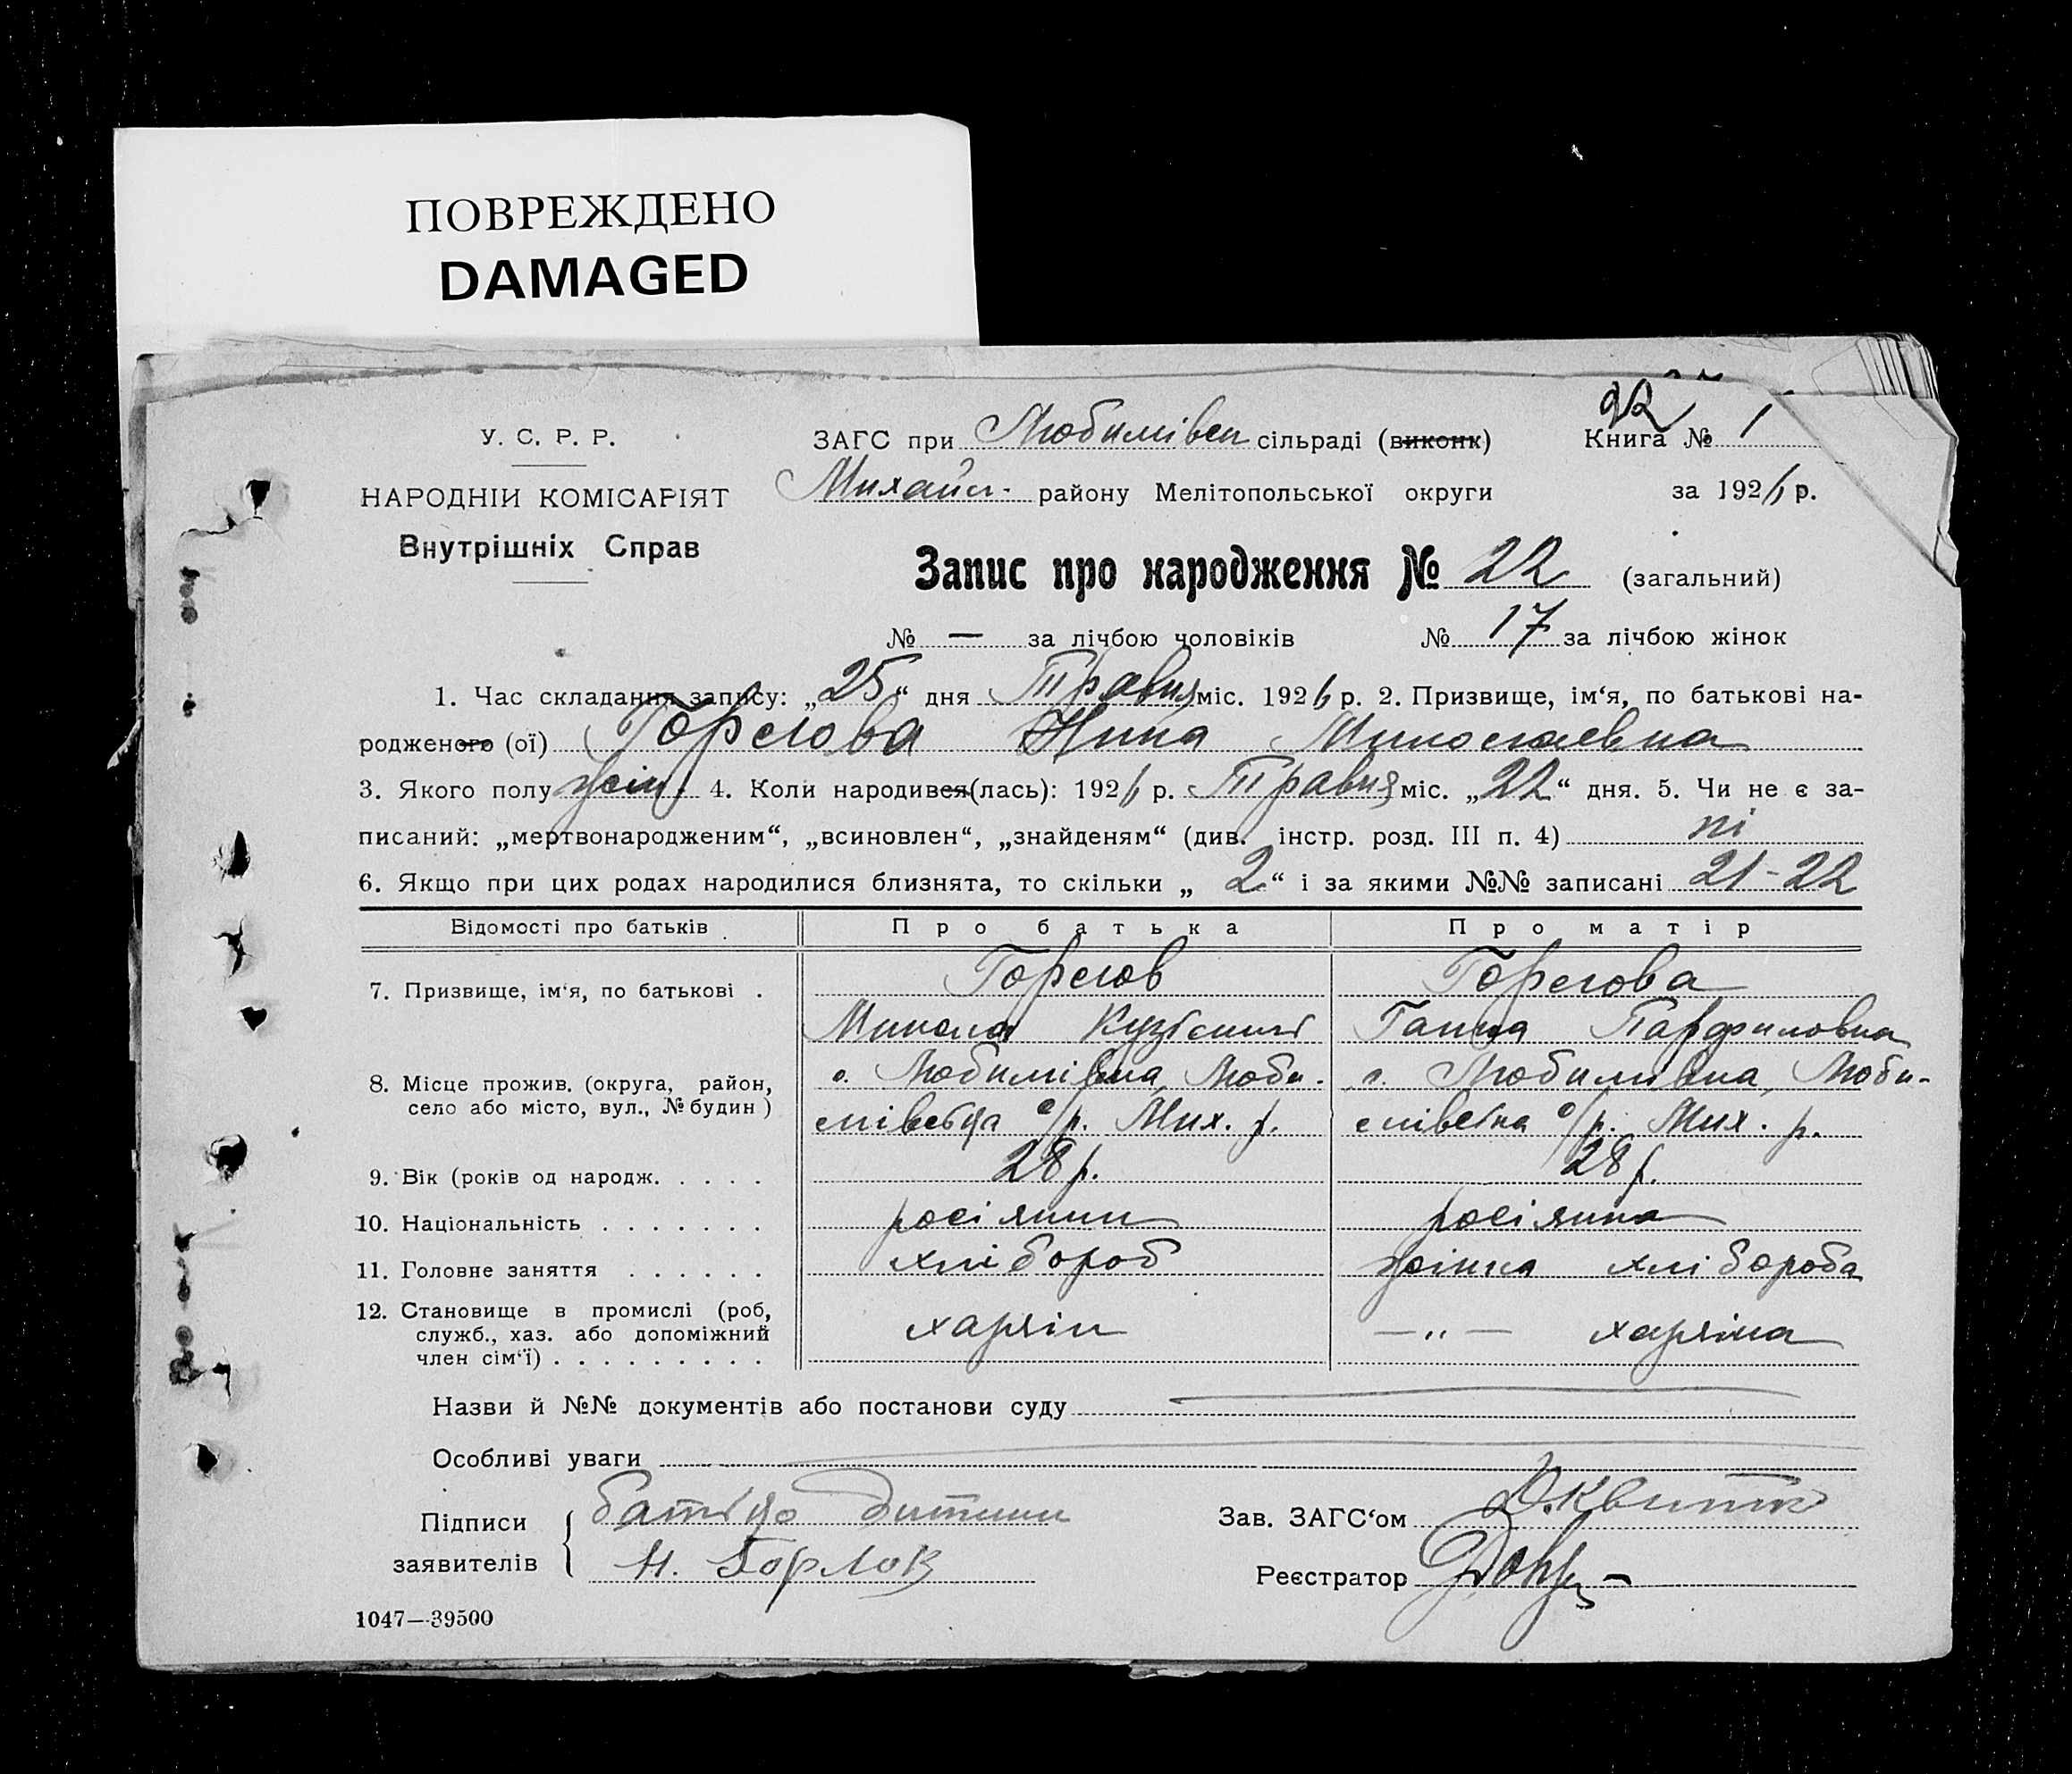 ПОВРЕЖДЕНО
DAMAGED
22
У. С. Р. Р.
ЗАГС при Любимівськ сільраді (виконк) Книга № 1
НАРОДНІЙ КОМІСАРІЯТ
Михайл. району Мелітопольської округи за 1926 р.
Внутрішніх Справ
Запис про народження № 22 (загальний)
№ — за лічбою чоловіків № 17 за лічбою жінок
1. Час складання запису: „25“ дня Травня міс. 1926 р. 2. Призвище, ім‘я, по батькові на-
родженого (ої) Горлова Нина Миколаевна
3. Якого полу жін. 4. Коли народився(лась): 1926 р. Травня міс. „22“ дня. 5. Чи не є за-
писаний: „мертвонародженим“, „всиновлен“, „знайденям“ (див. інстр. розд. III п. 4) ні
6. Якщо при цих родах народилися близнята, то скільки „2“ і за якими №№ записані 21-22
Відомості про батьків Про батька Про матір
7. Призвище, ім‘я, по батькові . Горлов Горлова
Микола Кузьмич Ганна Парфиловна
8. Місце прожив. (округа, район, с. Любимівка, Люби- с. Любимівка, Люби-
село або місто, вул., № будин) мівська с/р. Мих. р. мівська с/р. Мих. р.
9. Вік (років од народж. . . . . 28 р. 28 р.
10. Національність . . . . . . . росіянин росіянка
11. Головне заняття . . . . . . хлібороб жінка хлібороба
12. Становище в промислі (роб,
служб., хаз. або допоміжний хазяїн —„— хазяїна
член сім‘ї) . . . . . . . . .
Назви й №№ документів або постанови суду
Особливі уваги
Підписи батько дитини Зав. ЗАГС‘ом Квитко
заявителів Н. Горлов Реєстратор
1047—39500